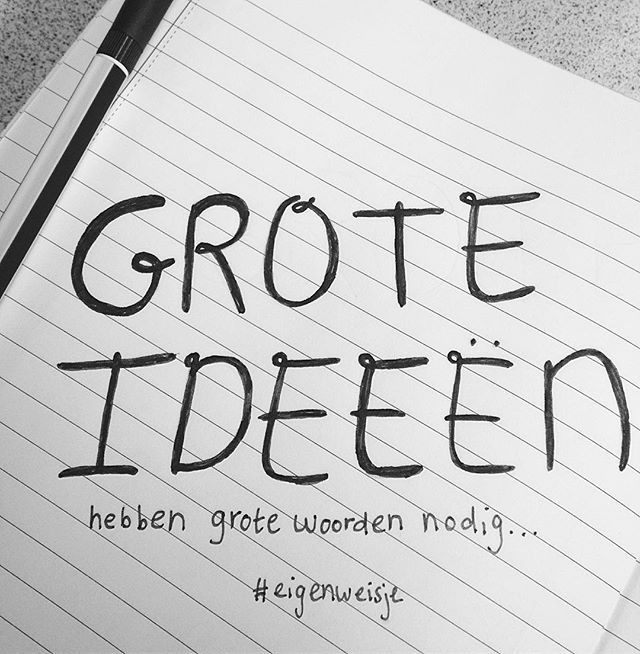 GROTE
IDEEËN
hebben grote woorden nodig...
#eigenweisje